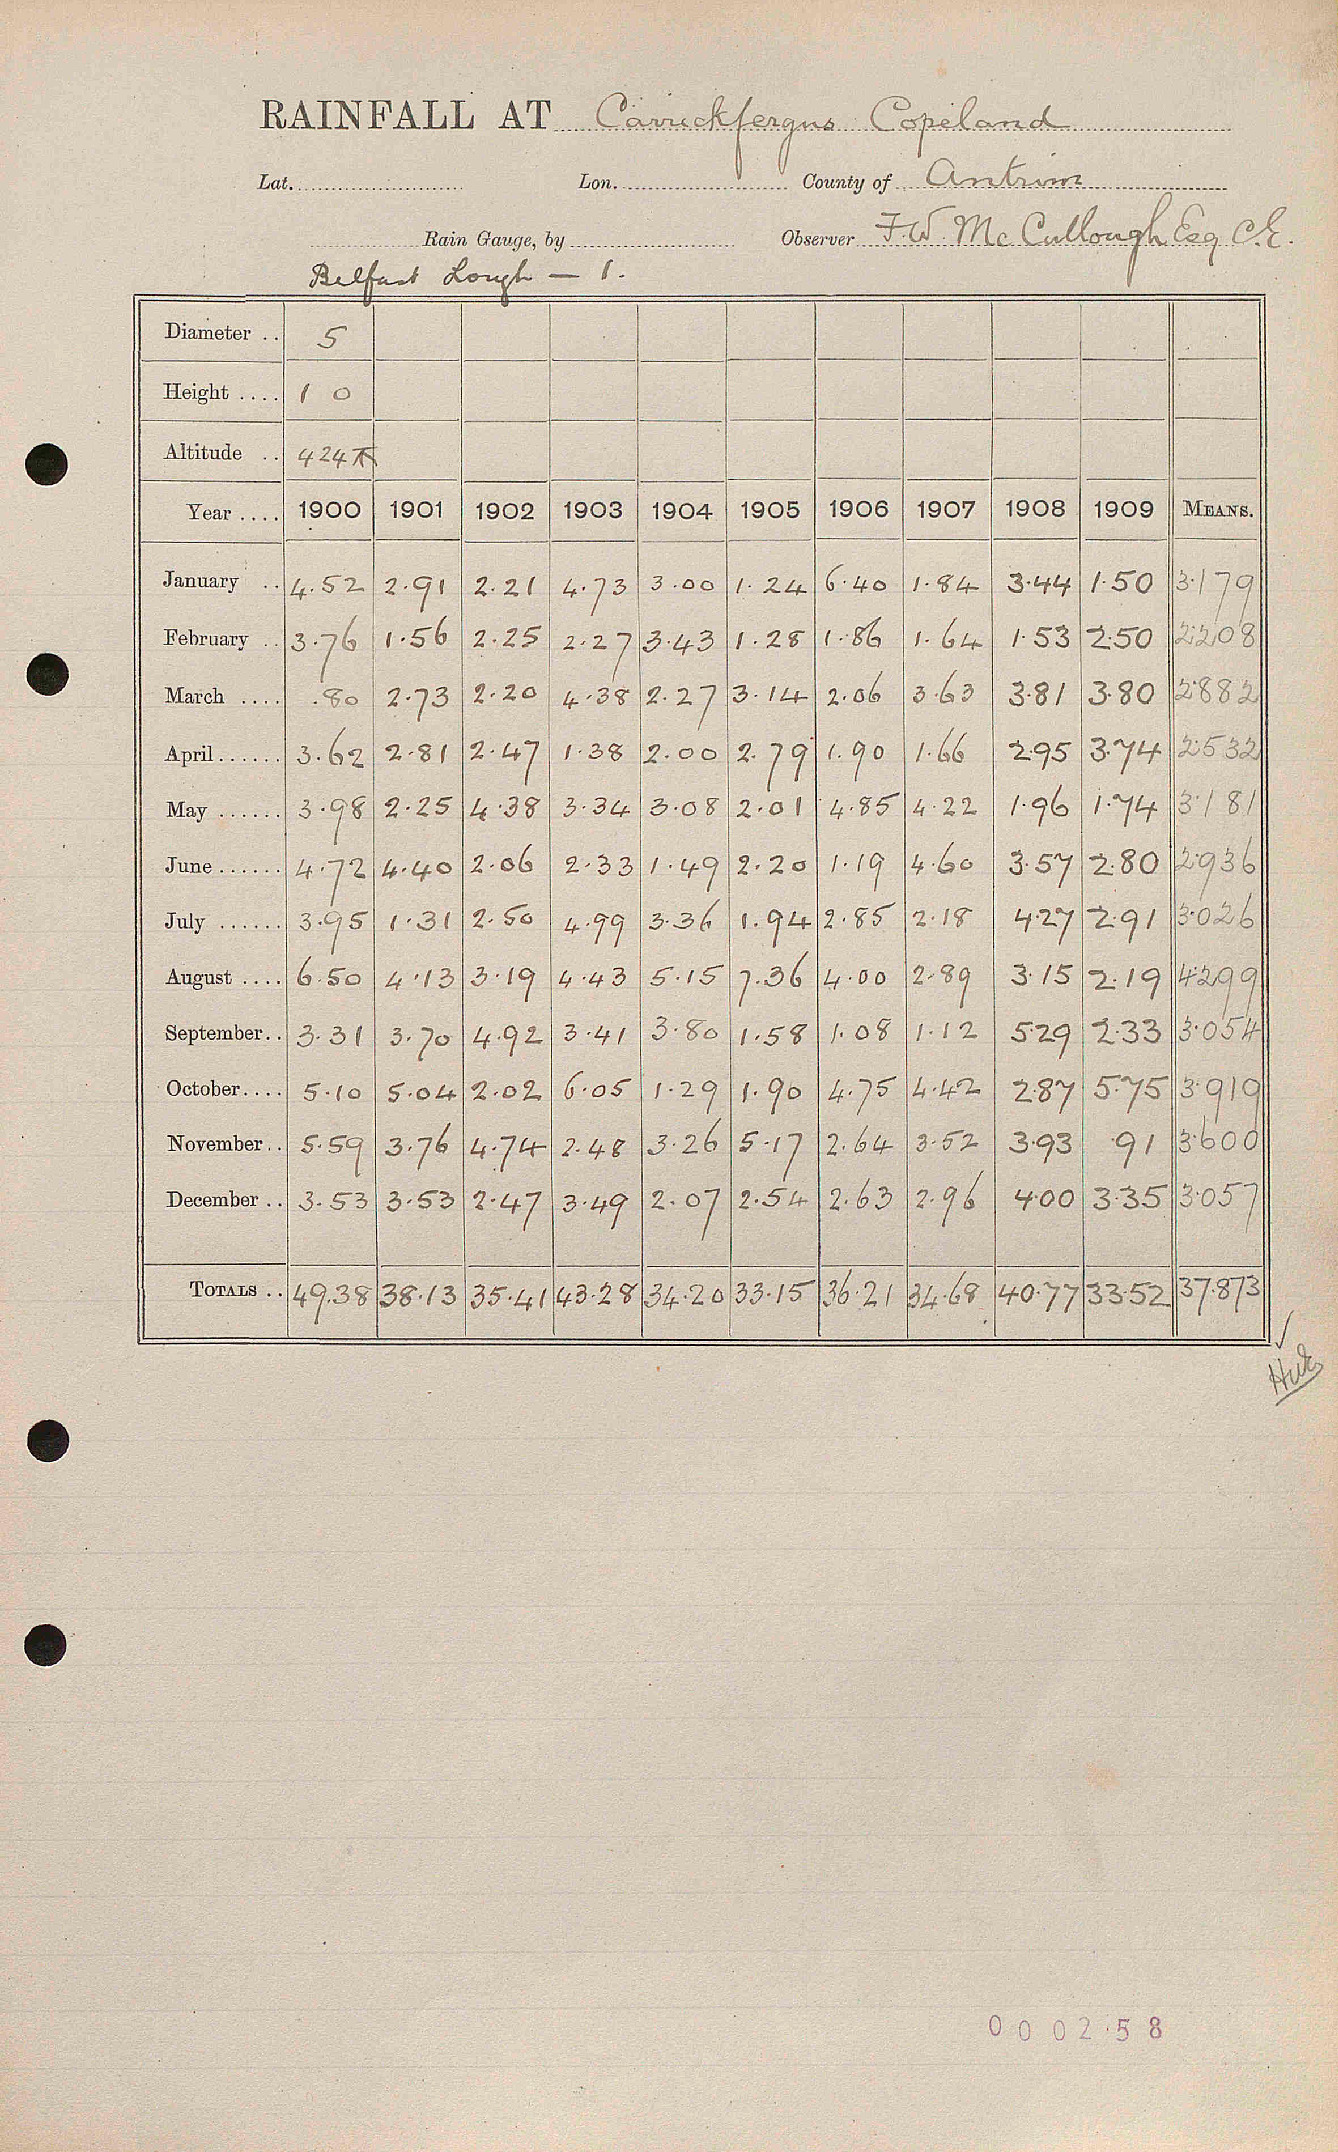 RAINFALL AT Carrickfergus Copeland
Lat. Lon. County of Antrim
Rain Gauge, by Observer F.W. McCullough Esq C.E.
Belfast Lough — 1.
Diameter .. 5
Height .... 1 0
Altitude .. 424 ft
Year .... 1900 1901 1902 1903 1904 1905 1906 1907 1908 1909 MEANS.
January .. 4.52 2.91 2.21 4.73 3.00 1.24 6.40 1.84 3.44 1.50 3.179
February .. 3.76 1.56 2.25 2.27 3.43 1.28 1.86 1.64 1.53 2.50 2.208
March .... .80 2.73 2.20 4.38 2.27 3.14 2.06 3.63 3.81 3.80 2.882
April...... 3.62 2.81 2.47 1.38 2.00 2.79 1.90 1.66 2.95 3.74 2.532
May ...... 3.98 2.25 4.38 3.34 3.08 2.01 4.85 4.22 1.96 1.74 3.181
June...... 4.72 4.40 2.06 2.33 1.49 2.20 1.19 4.60 3.57 2.80 2.936
July ...... 3.95 1.31 2.50 4.99 3.36 1.94 2.85 2.18 4.27 2.91 3.026
August .... 6.50 4.13 3.19 4.43 5.15 7.36 4.00 2.89 3.15 2.19 4.299
September.. 3.31 3.70 4.92 3.41 3.80 1.58 1.08 1.12 5.29 2.33 3.054
October.... 5.10 5.04 2.02 6.05 1.29 1.90 4.75 4.42 2.87 5.75 3.919
November.. 5.59 3.76 4.74 2.48 3.26 5.17 2.64 3.52 3.93 .91 3.600
December .. 3.53 3.53 2.47 3.49 2.07 2.54 2.63 2.96 4.00 3.35 3.057
TOTALS .. 49.38 38.13 35.41 43.28 34.20 33.15 36.21 34.68 40.77 33.52 37.873
000258